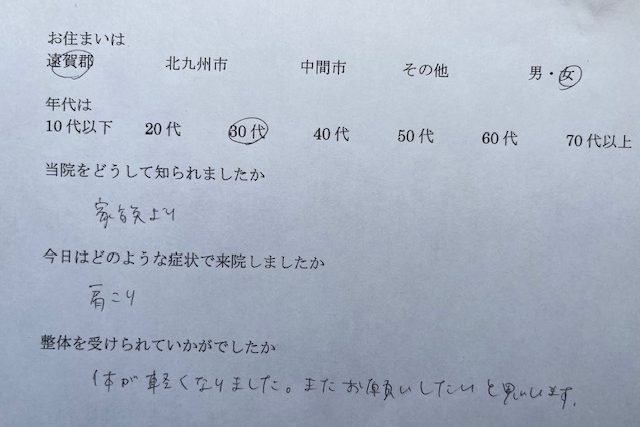 お住まいは
遠賀郡 北九州市 中間市 その他 男・女
年代は
10代以下 20代 30代 40代 50代 60代 70代以上
当院をどうして知られましたか
家族より
今日はどのような症状で来院しましたか
肩こり
整体を受けられていかがでしたか
体が軽くなりました。またお願いしたいと思います。